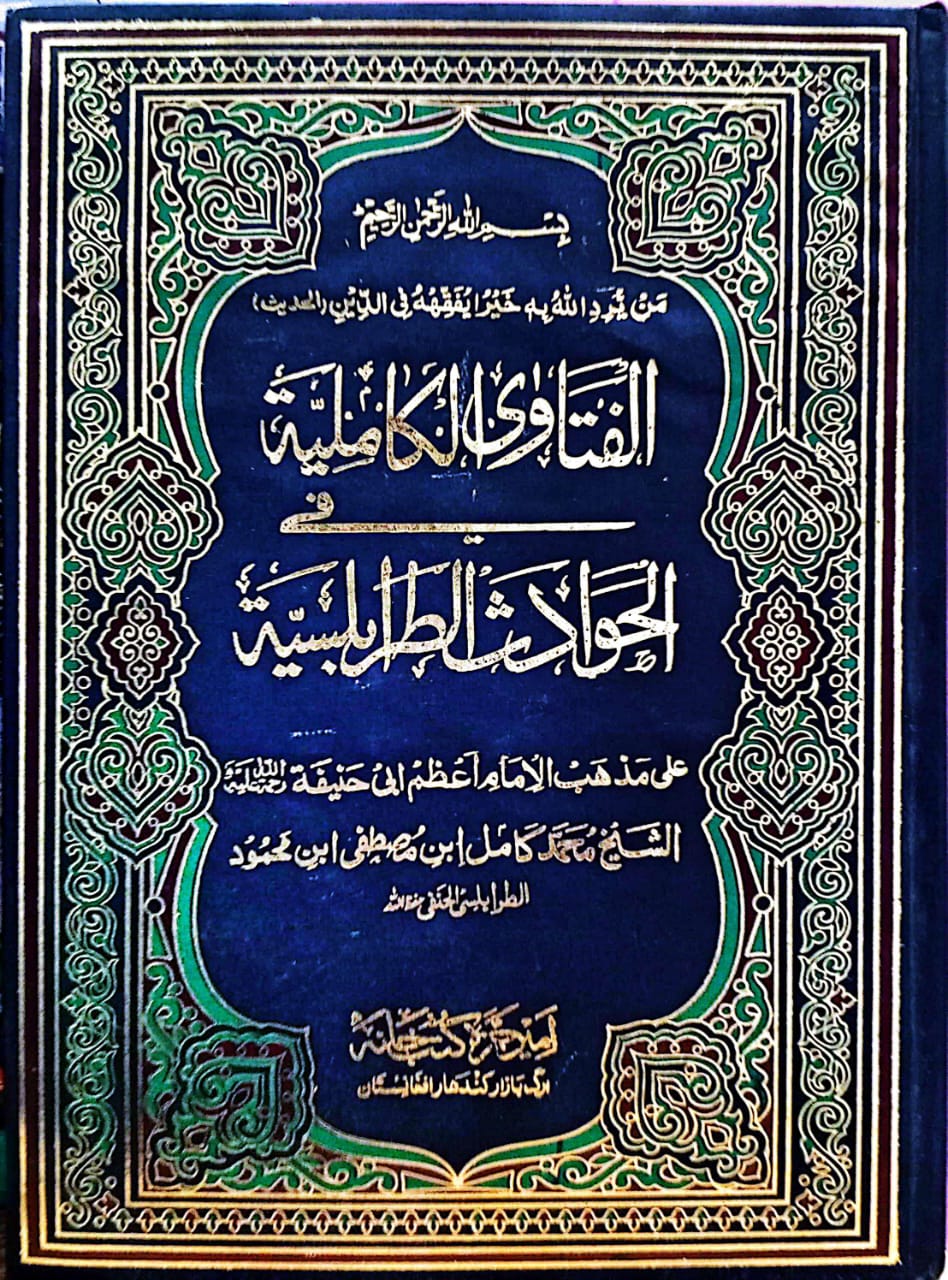 بِسْمِ اللهِ الرَّحْمٰنِ الرَّحِيْمِ
مَنْ يُّرِدِ اللهُ بِهٖ خَيْرًا يُفَقِّهْهُ فِي الدِّيْنِ (الحديث)
الفَتَاوىٰ الكَامِلِيَّة
في
الحَوَادِثِ الطَرابلسِيَّة
على مَذهَب الإمَام اَعْظمْ ابِىْ حَنِيفَة رحمة الله عليه
الشَّيخ مُحَمَّد كَامل ابن مُصطفى ابن محمُود
الطرابلسى الحنفى
كتب خانه
ارگ بازار کندهار افغانستان